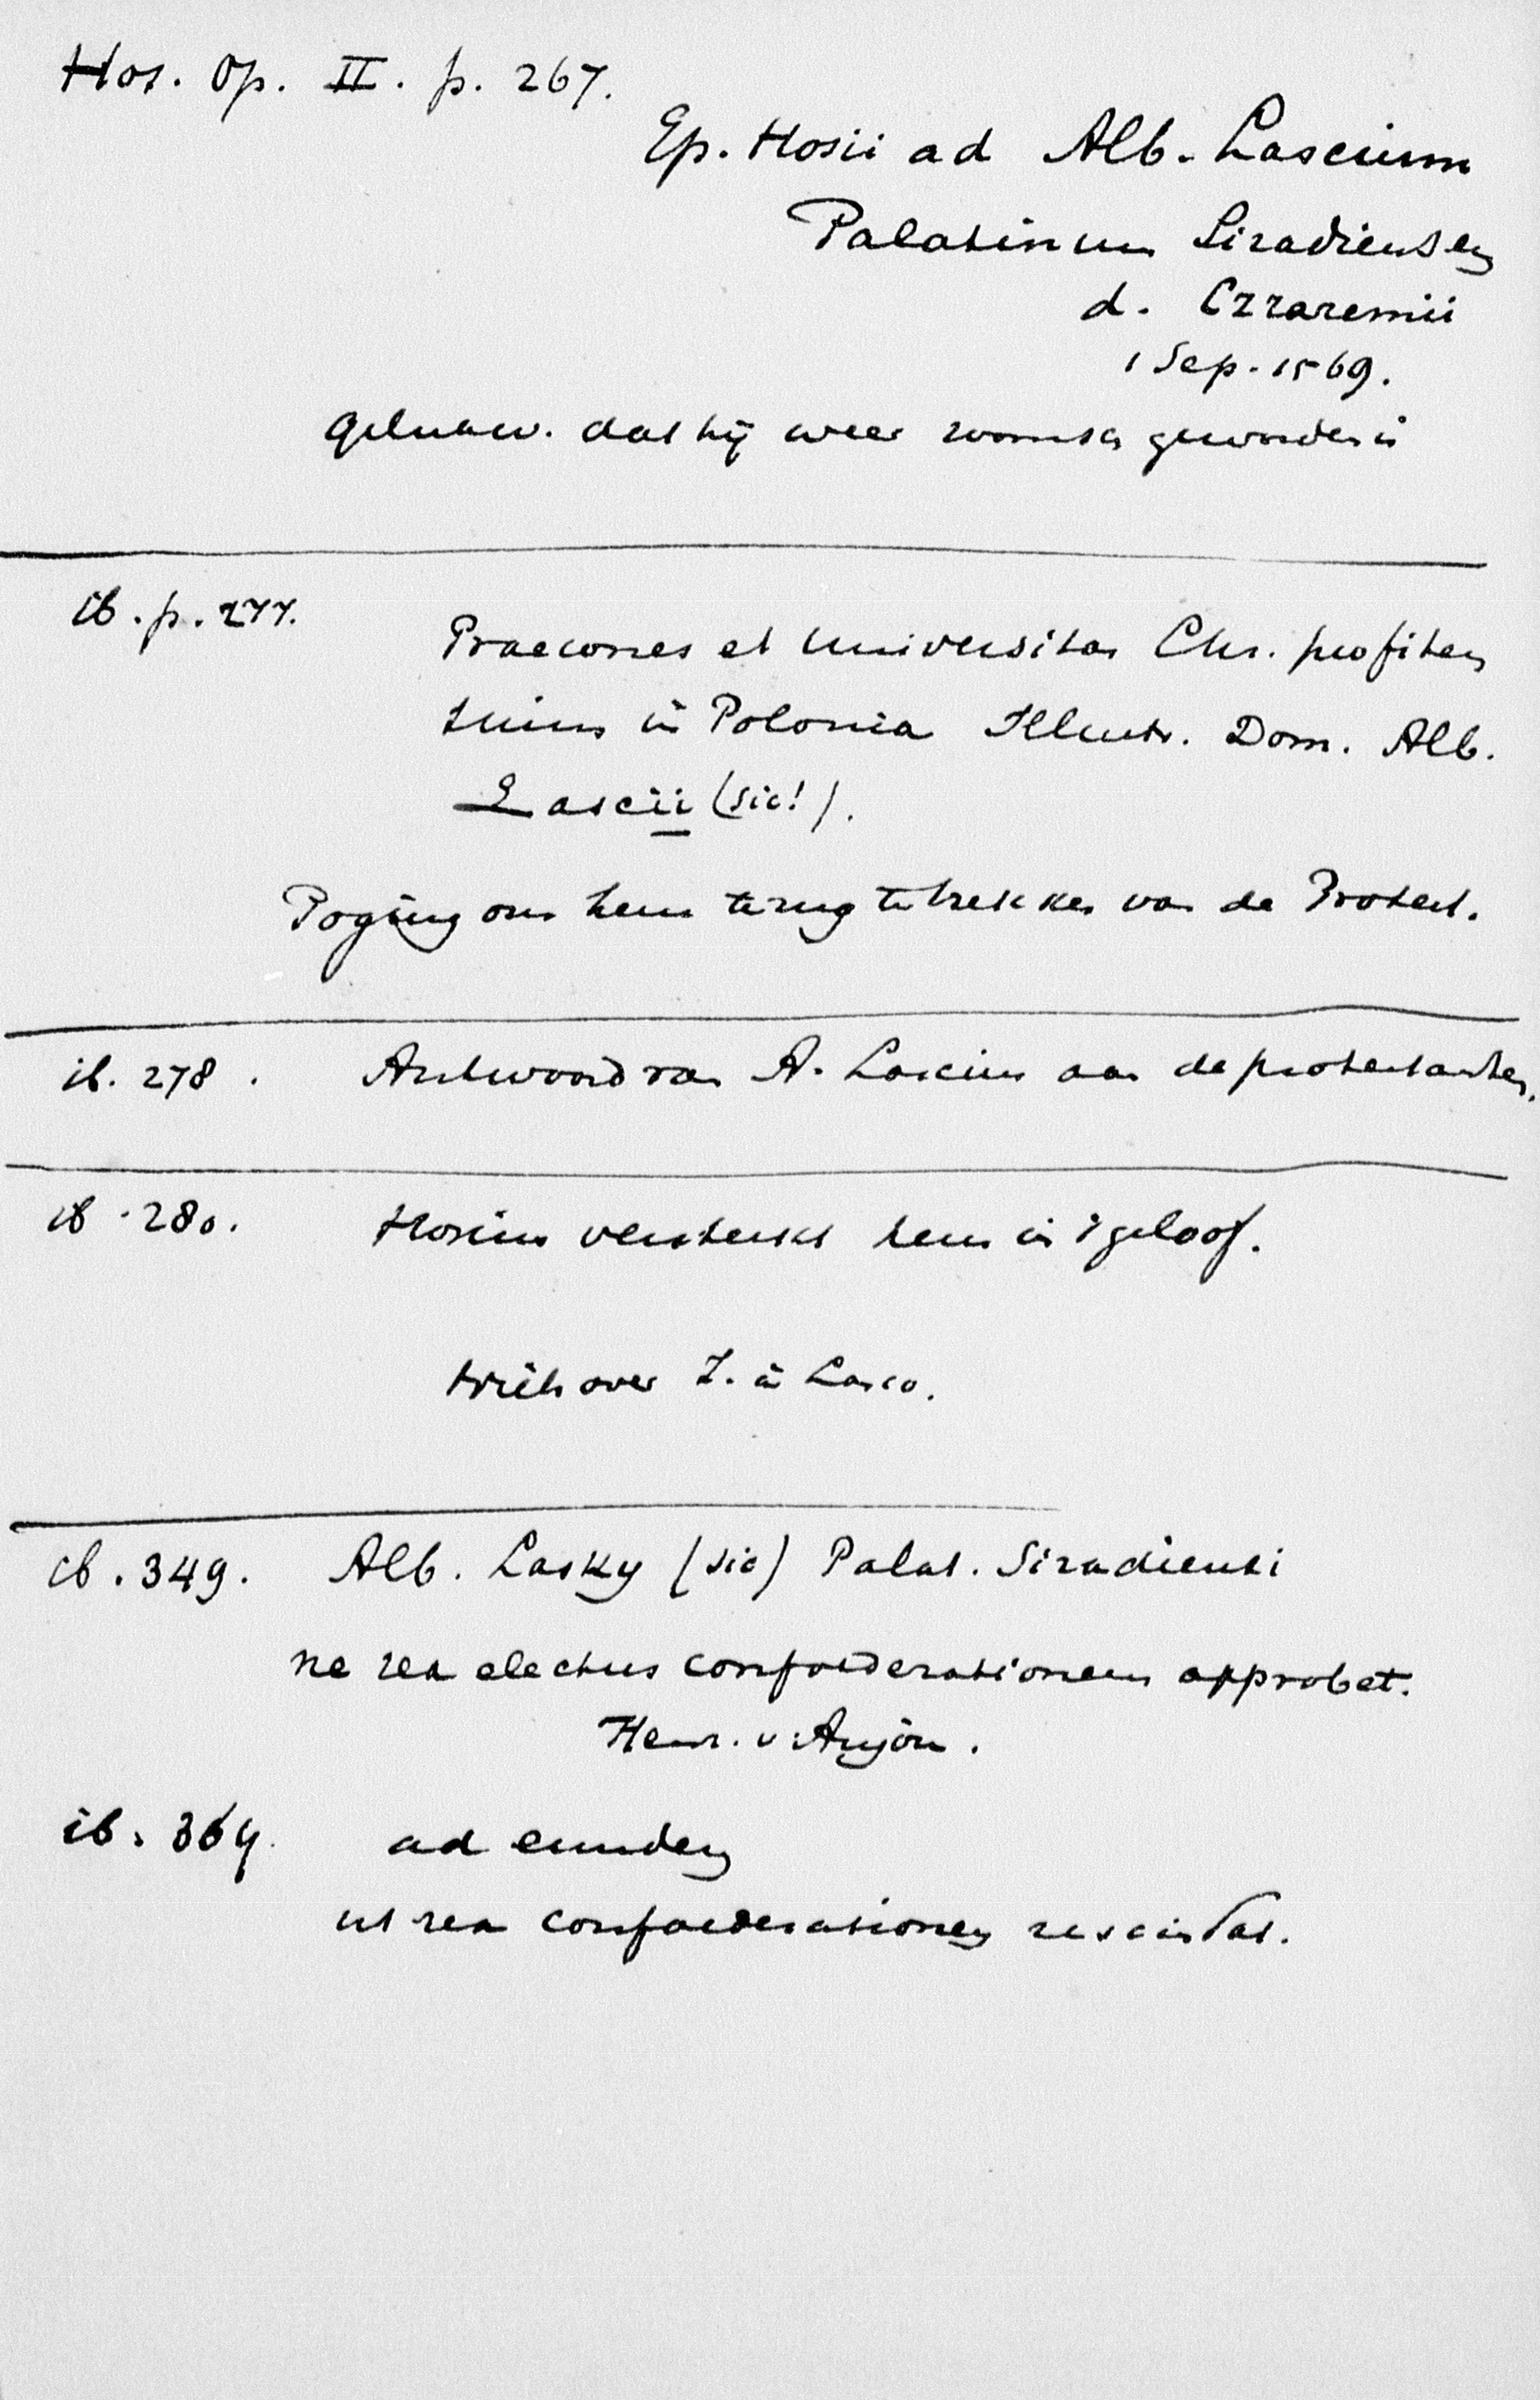 Hos. Op. II. p. 267.
Ep. Hosii ad Alb. Lascium
Palatinum Siradiensem
d. Czraremii
1 Sep. 1569.
Gelukw. dat hij weer roomsch geworden is
ib. p. 277.
Praecones et Universitas Chr. profiten
tium in Polonia Illustr. Dom. Alb.
Lascii (sic!).
Poging om hem terug te trekken van de Protest.
ib. 278. Antwoord van A. Lascius aan de protestanten.
ib. 280. Hosius versterkt hem in 't geloof.
over J. à Lasco.
ib. 349. Alb. Lasky (sic) Palat. Siradiensi
ne rex electus confoederationem approbet.
Henr. v. Anjou.
ib. 364. ad eundem
ut rex confoederationem rescindat.